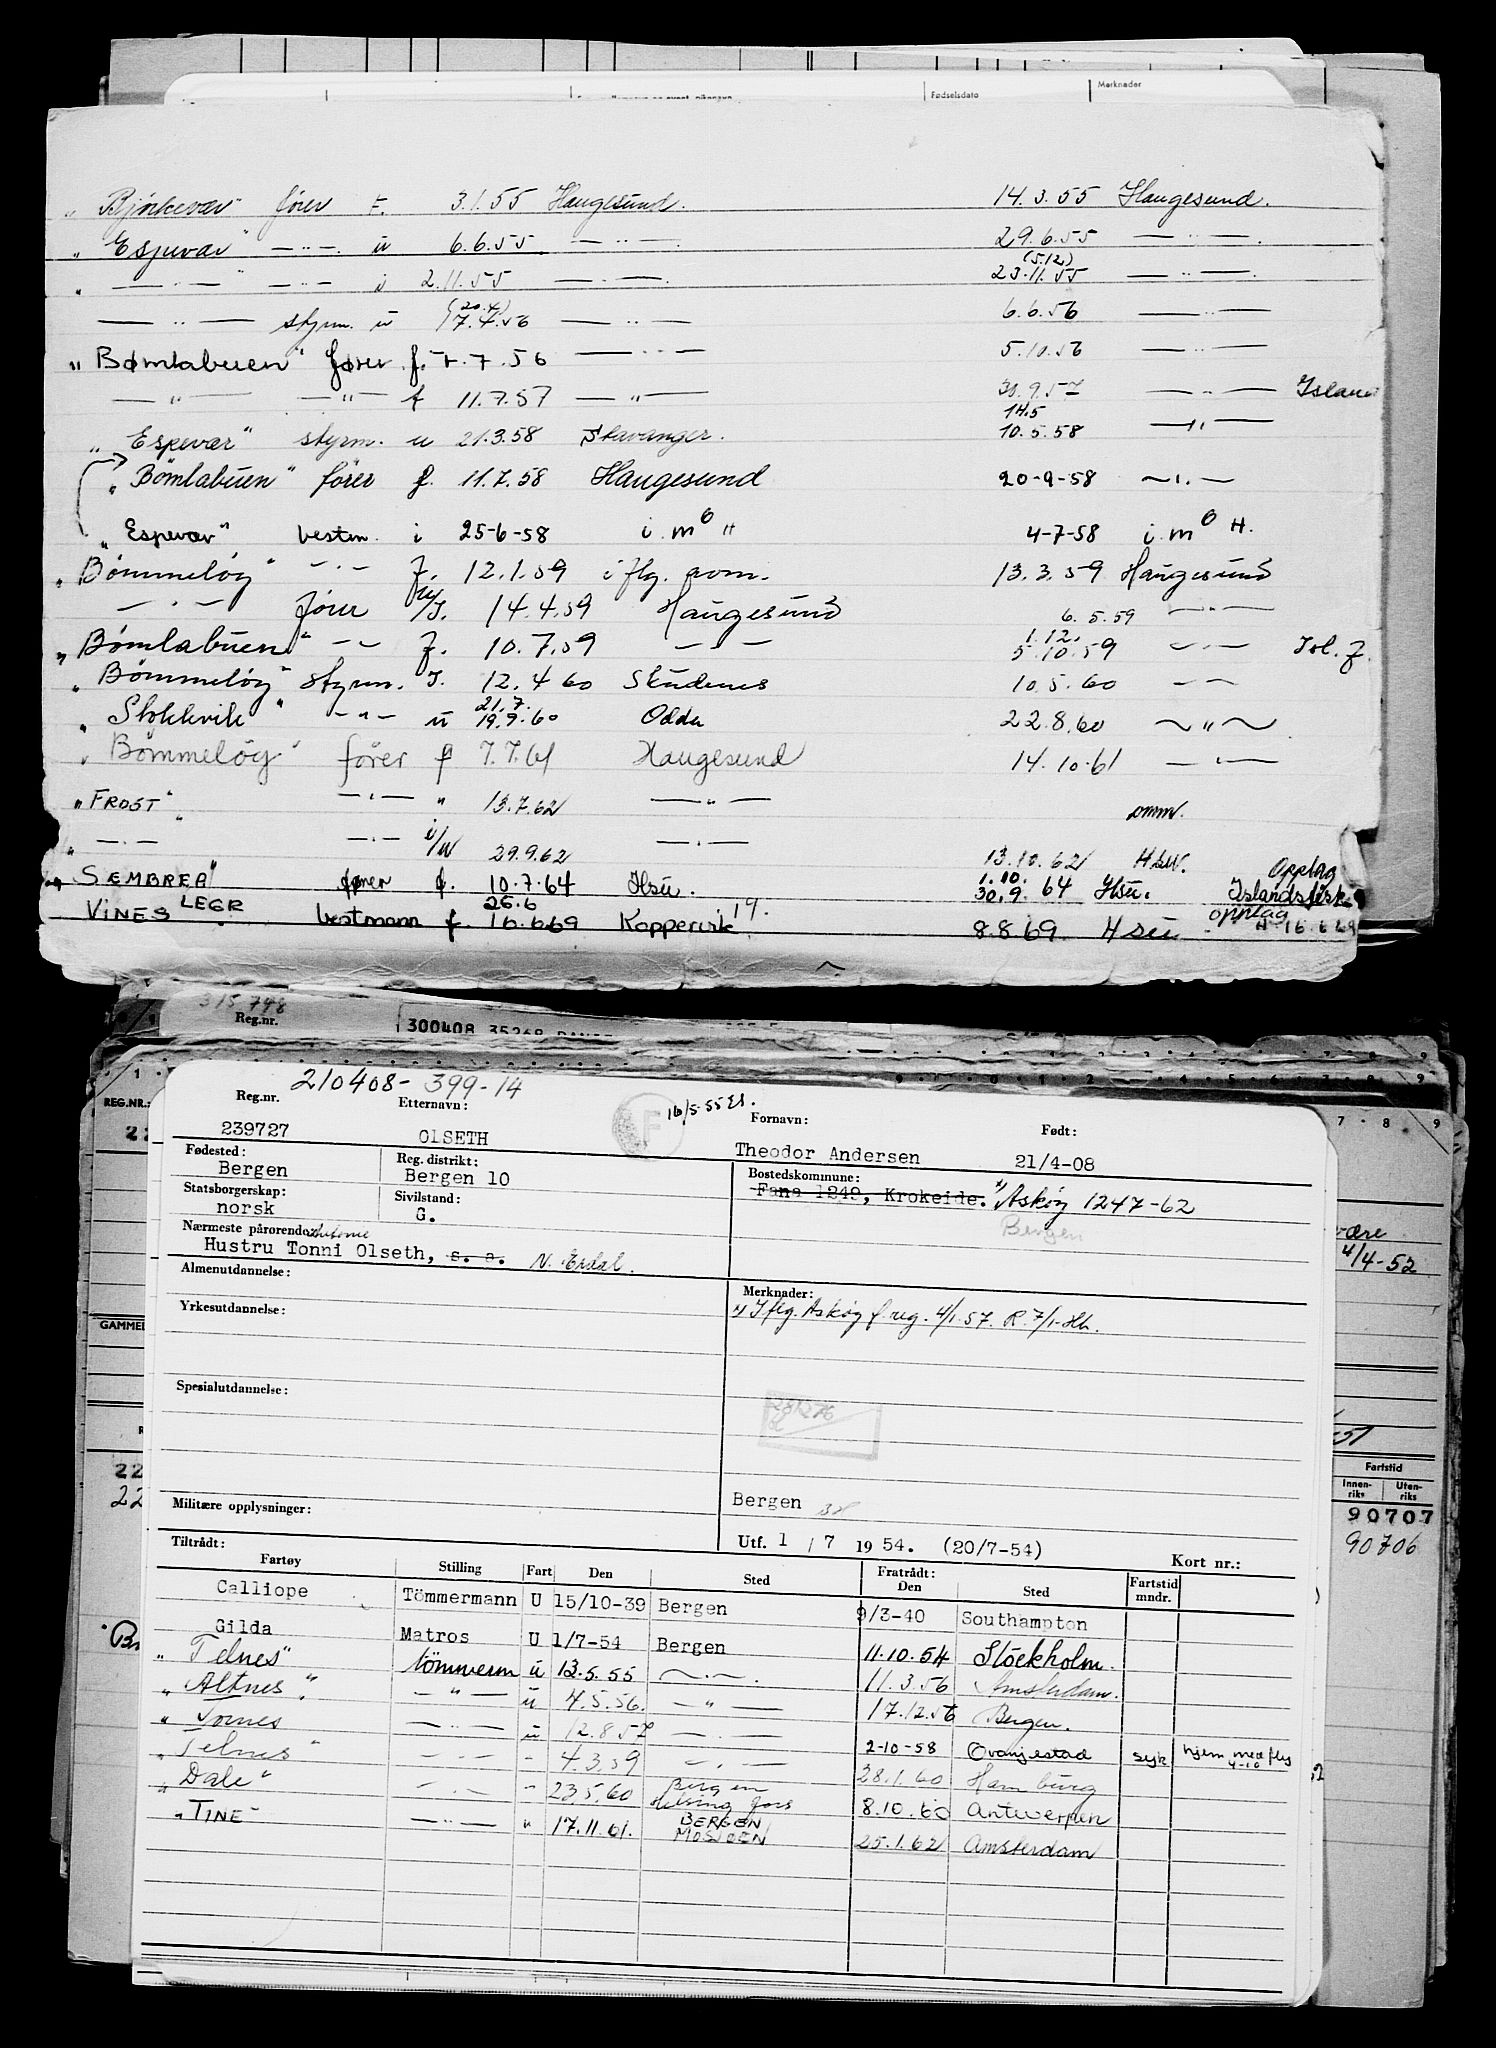 Fødselsdato
Merknader
" Björkevær" förer F. 3.1.55 Haugesund. 14.3.55 Haugesund.
" Espevær" — " — ü 6.6.55 — " — 29.6.55 — " —
(5.12)
" — " — — " — i 2.11.55 — " — 23.11.55 — " —
(20.4)
— " — styrm. ü 17.4.56 — " — 6.6.56 — " —
" Bømlabuen" fører f. 7.56 — " — 5.10.56 — " —
— " — — " — f 11.7.57 — " — 30.9.57 — " — Island
14.5
" Espevær" styrm. u 21.3.58 Stavanger. 10.5.58 — " —
" Bömlabuen" förer f. 11.7.58 Haugesund 20-9-58 — " —
" Espevær" bestm. i 25-6-58 i. m⁰ " 4-7-58 i. m⁰ H.
" Bömmelöy" — " — F. 12.1.59 i flg. 13.3.59 Haugesund
— " — förer 14.4.59 Haugesund 6.5.59 — " —
1.12.
" Bömlabuen" — " — F. 10.7.59 — " — 5.10.59 — " — Isl. f.
" Bömmelöy" styrm. I. 12.4.60 Skudenes 10.5.60 — " —
21.7.
" Stokkvik" — " — ü 19.9.60 Odda 22.8.60 — " —
" Bömmelöy" förer f 7.7.61 Haugesund 14.10.61 — " —
" FROST" — " — " 13.7.62 — " — omm.
" — " — — " — i/u 29.9.62 — " — 13.10.62 Opplag
" SEMBREA" fører f. 10.7.64 Hsu. 1.10. 30.9.64 Hsu. Islandsfisk
26.6
VINES LEGR bestmann f. 16.6.69 Koppervik 8.8.69 Hsu. opplag 16.6.69
315.748
Reg.nr.
300408 35268
REG.NR.:
GAMMEL
4/4-52
Fartstid
Innen-riks Uten-riks
90707
90706
210408- 399-14
16/5-55
F
Reg.nr. Etternavn: Fornavn: Født:
239727 OLSETH Theodor Andersen 21/4-08
Fødested: Reg. distrikt: Bostedskommune:
Bergen Bergen 10 Fana 1249, Krokeide. 1) Askøy 1247-62
Statsborgerskap: Sivilstand:
norsk G. Bergen
Nærmeste pårørende:
Hustru Tonni Olseth, s. a. N. Erdal.
Almenutdannelse: Merknader:
1) Iflg. Askøy f.reg. 4/1.57. R. 7/1-Hh.
Yrkesutdannelse:
Spesialutdannelse:
281276
Militære opplysninger: Bergen
Utf. 1 / 7 19 54. (20/7-54) Kort nr.:
Tiltrådt: Fratrådt:
Fartøy Stilling Fart Den Sted Den Sted Fartstid mndr.
Calliope Tömmermann U 15/10-39 Bergen 9/3-40 Southampton
Gilda Matros U 1/7-54 Bergen 11.10.54 Stockholm.
" Telnes" tömmerm ü 13.5.55 — " — 11.3.56 Amsterdam.
" Altnes" — " — ü 4.5.56. — " — 17.12.56 Bergen.
" Tornes — " — ü 12.8.57 — " — 2-10-58 Oranjestad syk hjem med fly 4-10
" Telnes" — " — - 4.3.59 — " — 28.1.60 Hamburg
" Dale" — " — - 23.5.60 Bergen Helsingfors 8.10.60 Antwerpen
" TINE" — " — " 17.11.61. BERGEN MOSJØEN 25.1.62 Amsterdam